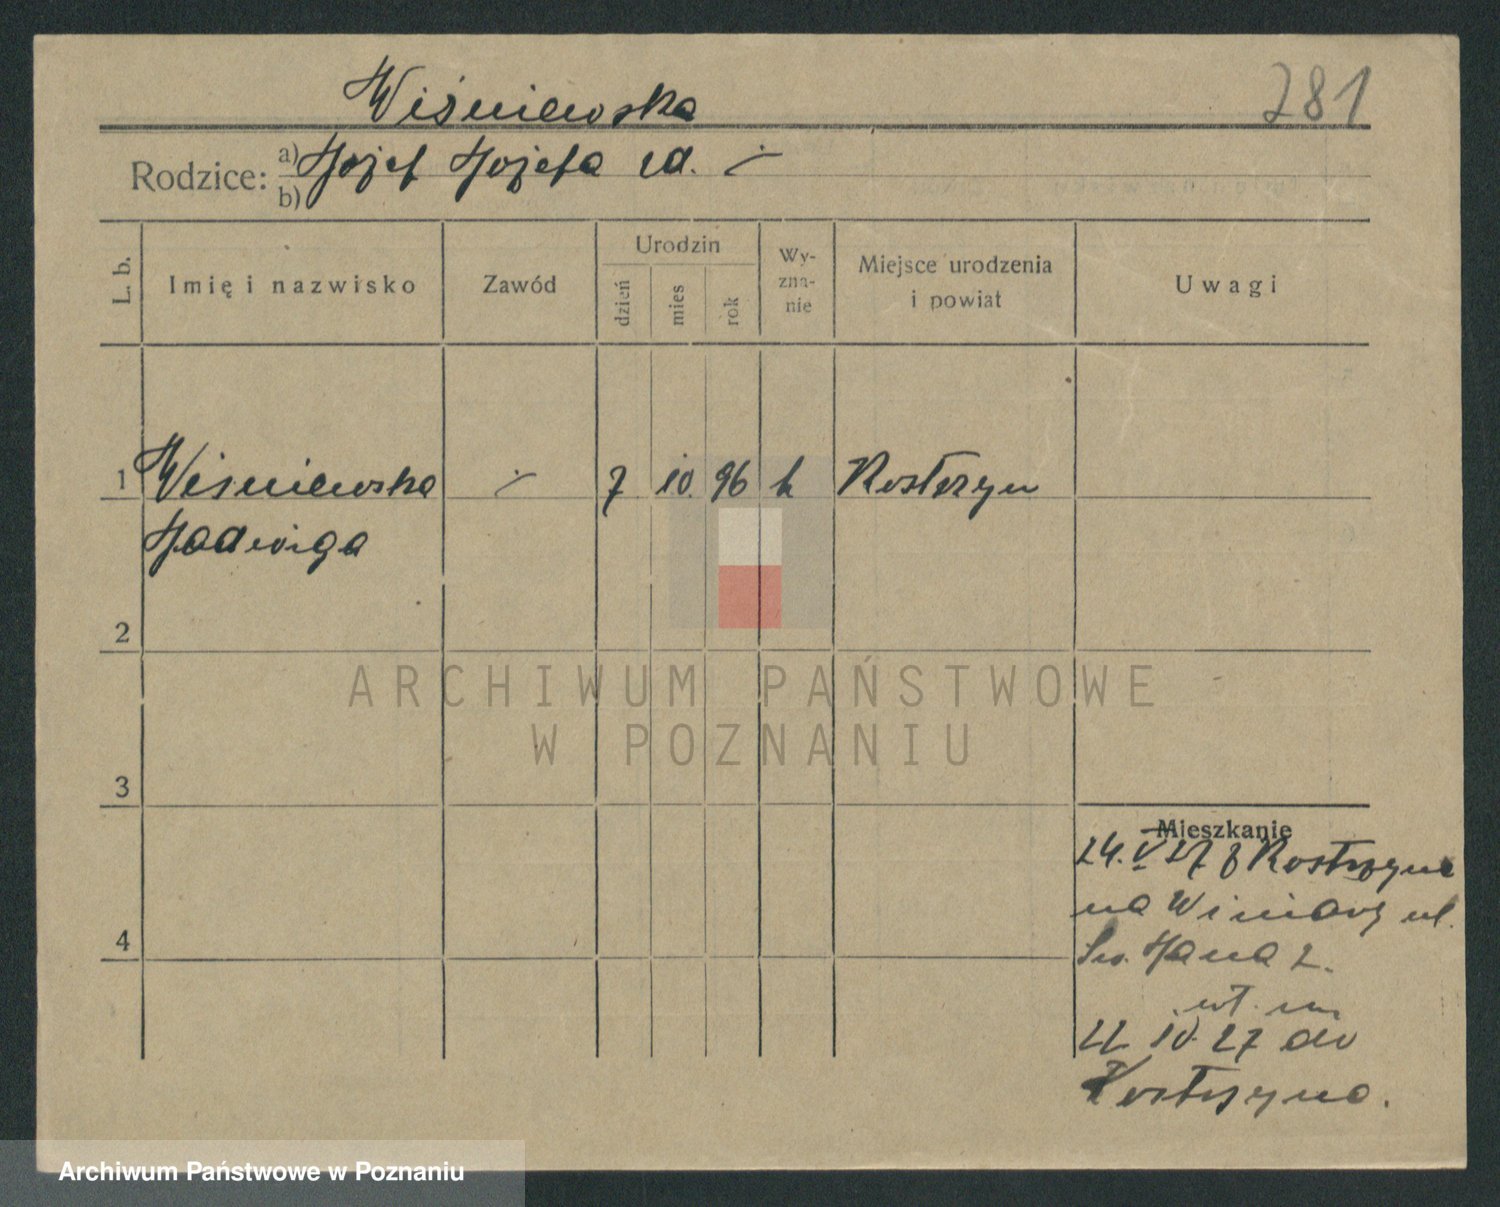 Wiśniewska
281
Rodzice: a) Józef Józefa zd. ÷
b)
L. b. Imię i nazwisko Zawód Urodzin dzień mies rok Wy- zna- nie Miejsce urodzenia i powiat Uwagi
1 Wiśniewska ÷ 7 10. 96 k Kostrzyn
Jadwiga
2
3
4
Mieszkanie
24. V 27 z Kostrzyna
na Winiary ul.
Św. Jana 2.
22 10. 27 do
Kostrzyna.
ARCHIWUM PAŃSTWOWE
W POZNANIU
Archiwum Państwowe w Poznaniu